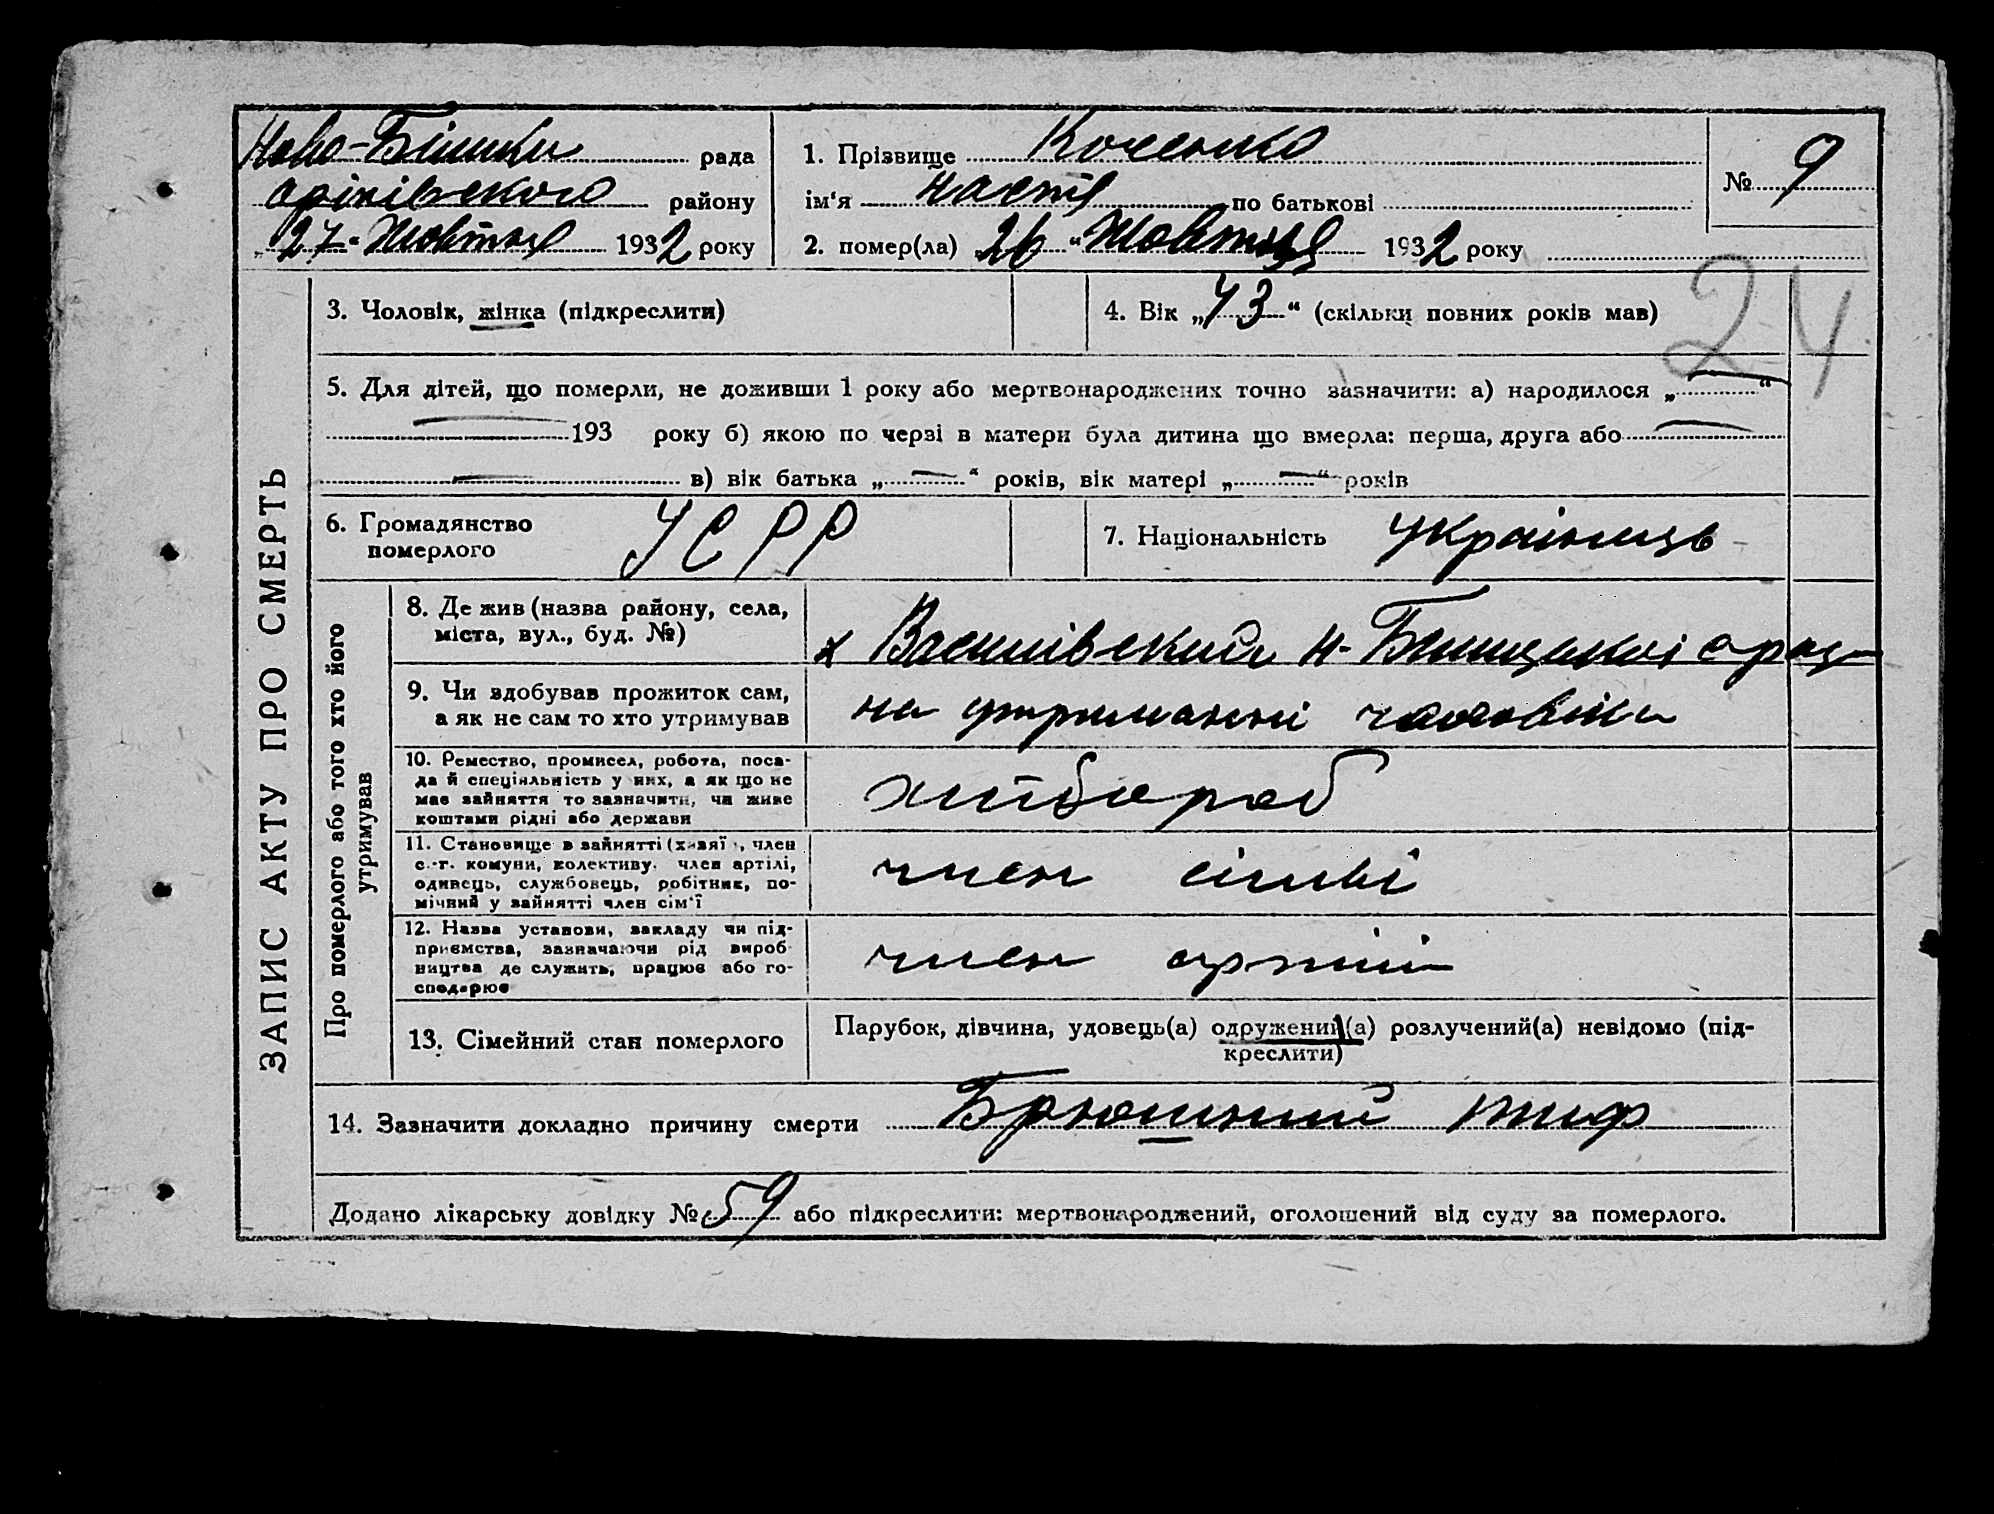 Ново-Бішкін рада
орінівского району
„27“ Жовтня 1932 року
1. Прізвище Коченко
ім‘я Настя по батькові
2. помер(ла) 26 “ Жовтня 1932 року
№ 9
24
ЗАПИС АКТУ ПРО СМЕРТЬ
3. Чоловік, жінка (підкреслити)
4. Вік „43“ (скільки повних років мав)
5. Для дітей, що померли, не доживши 1 року або мертвонароджених точно зазначити: а) народилося „ — “
— 193 року б) якою по черзі в матери була дитина що вмерла: перша, друга або —
— в) вік батька „ — “ років, вік матері „ — “ років
6. Громадянство
померлого
УСРР
7. Національність Українець
Про померлого або того хто його
утримував
8. Де жив (назва району, села,
міста, вул., буд. №)
х Василівский Н-
9. Чи здобував прожиток сам,
а як не сам то хто утримував
на утриманні чоловіка
10. Ремество, промисел, робота, поса-
да й специіяльність у них, а як що не
мав зайняття то зазначити, чи живе
коштами рідні або держави
хлібороб
11. Становище в зайнятті (хазяї, член
с.-г. комуни, колективу, член артілі,
одинець, службовець, робітник, по-
мічний у зайнятті член сім‘ї
член сімві
12. Назва установи, закладу чи під-
приємства, зазначаючи рід вироб
ництва де служить, працює або го-
сподарює
член артіли
13. Сімейний стан померлого
Парубок, дівчина, удовець(а) одружений(а) розлучений(а) невідомо (під-
креслити)
14. Зазначити докладно причину смерти Брюшний тиф
Додано лікарську довідку № 59 або підкреслити: мертвонароджений, оголошений від суду за померлого.